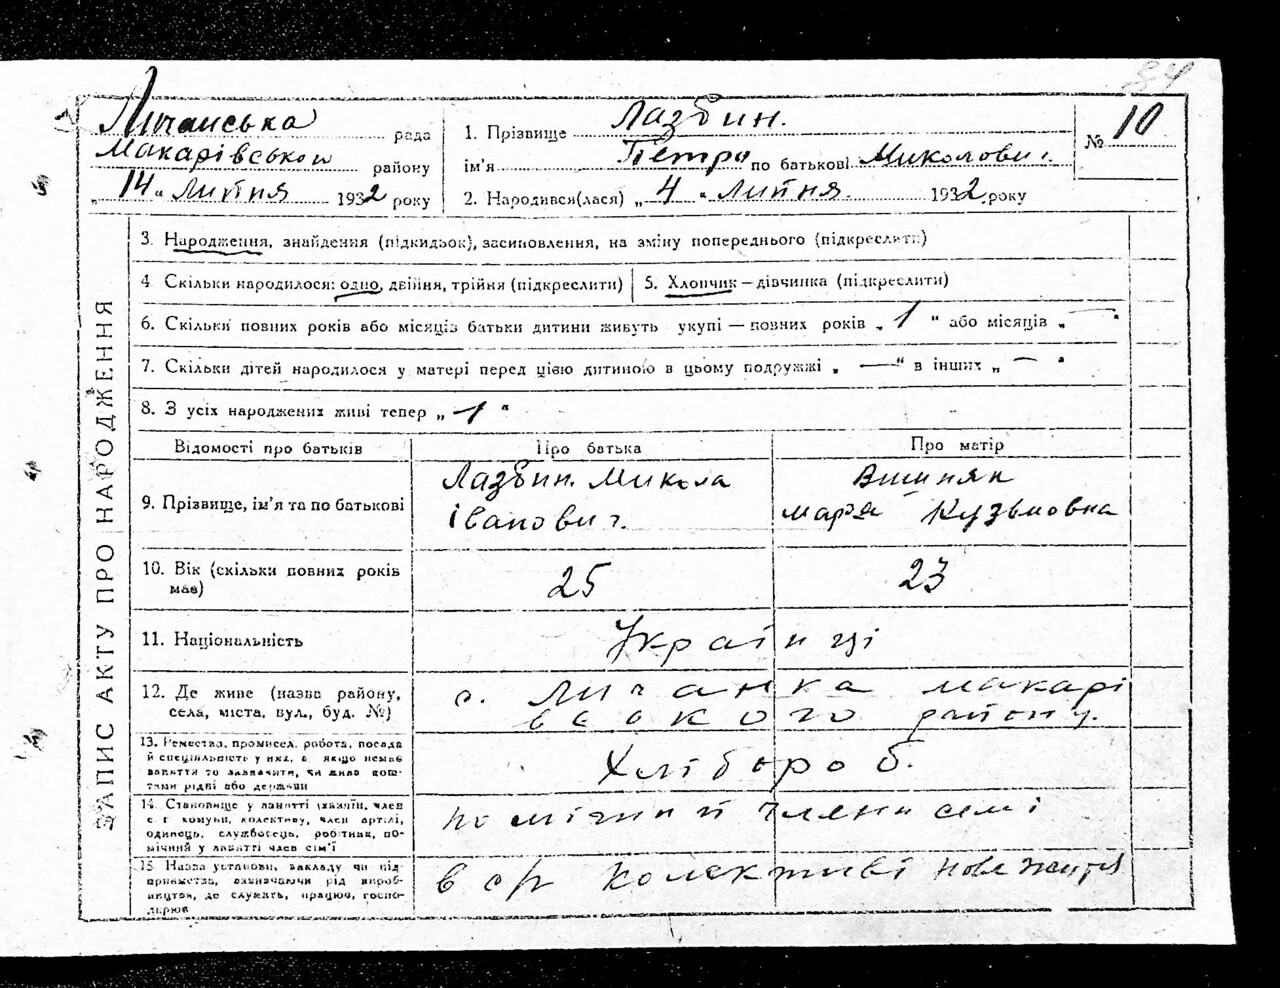 84
Личанська рада
Макарівського району
„ 14 " Липня 1932 року
1. Прізвище Лазбин.
ім'я Петро по батькові Миколович
2. Народився(лася) „ 4 " Липня 1932 року
№ 10
ЗАПИС АКТУ ПРО НАРОДЖЕННЯ
3. Народження, знайдення (підкидьок), засиновлення, на зміну попереднього (підкреслити)
4. Скільки народилося: одно, двійня, трійня (підкреслити)
5. Хлопчик — дівчинка (підкреслити)
6. Скільки повних років або місяців батьки дитини живуть укупі — повних років „ 1 " або місяців „ — "
7. Скільки дітей народилося у матері перед цією дитиною в цьому подружжі „ — " в інших „ — "
8. З усіх народжених живі тепер „ 1 "
Відомості про батьків
Про батька
Про матір
9. Прізвище, ім'я та по батькові
Лазбин. Микола
Іванович.
Мария Кузьмовна
10. Вік (скільки повних років
має)
25
23
11. Національність
Українці
12. Де живе (назва району,
села, міста, вул., буд. №)
с. Личанка макарі
вського району.
13. Ремество, промисел, робота, посада
й спеціяльність у них, а якщо немає
заняття то зазначити, чи живе кош-
тами рідні або держави
Хлібороб.
14. Становище у занятті (хазяїн, член
с. г. комуни, колективу, член артілі,
одинець, службовець, робітник, по-
мічний у занятті член сім'ї
помічний члени семі
15. Назва установи, закладу чи під-
приємства, зазначаючи рід вироб-
ництва, де служить, працює, госпо-
дарює
в колективі нове життя